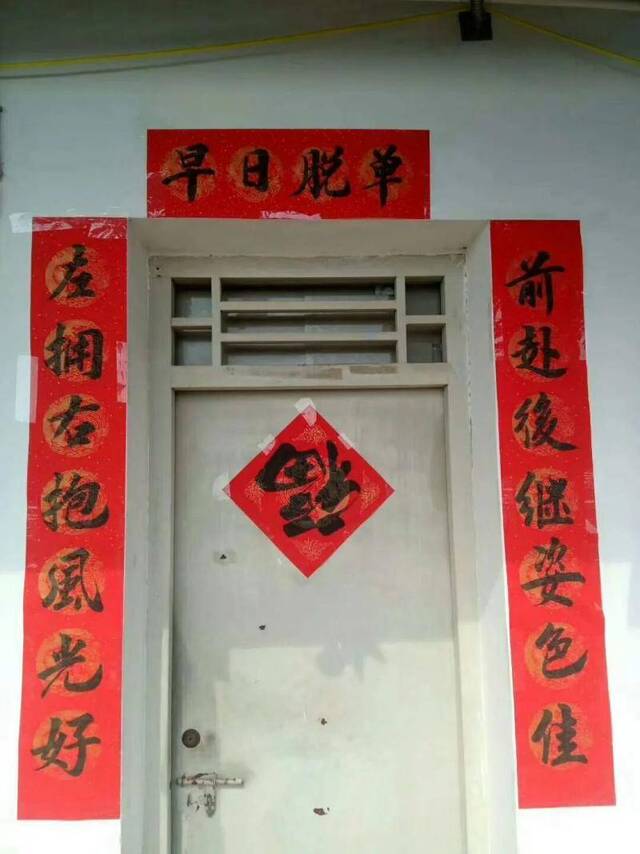 早日脱单
左拥右抱風光好
前赴後继姿色佳
福